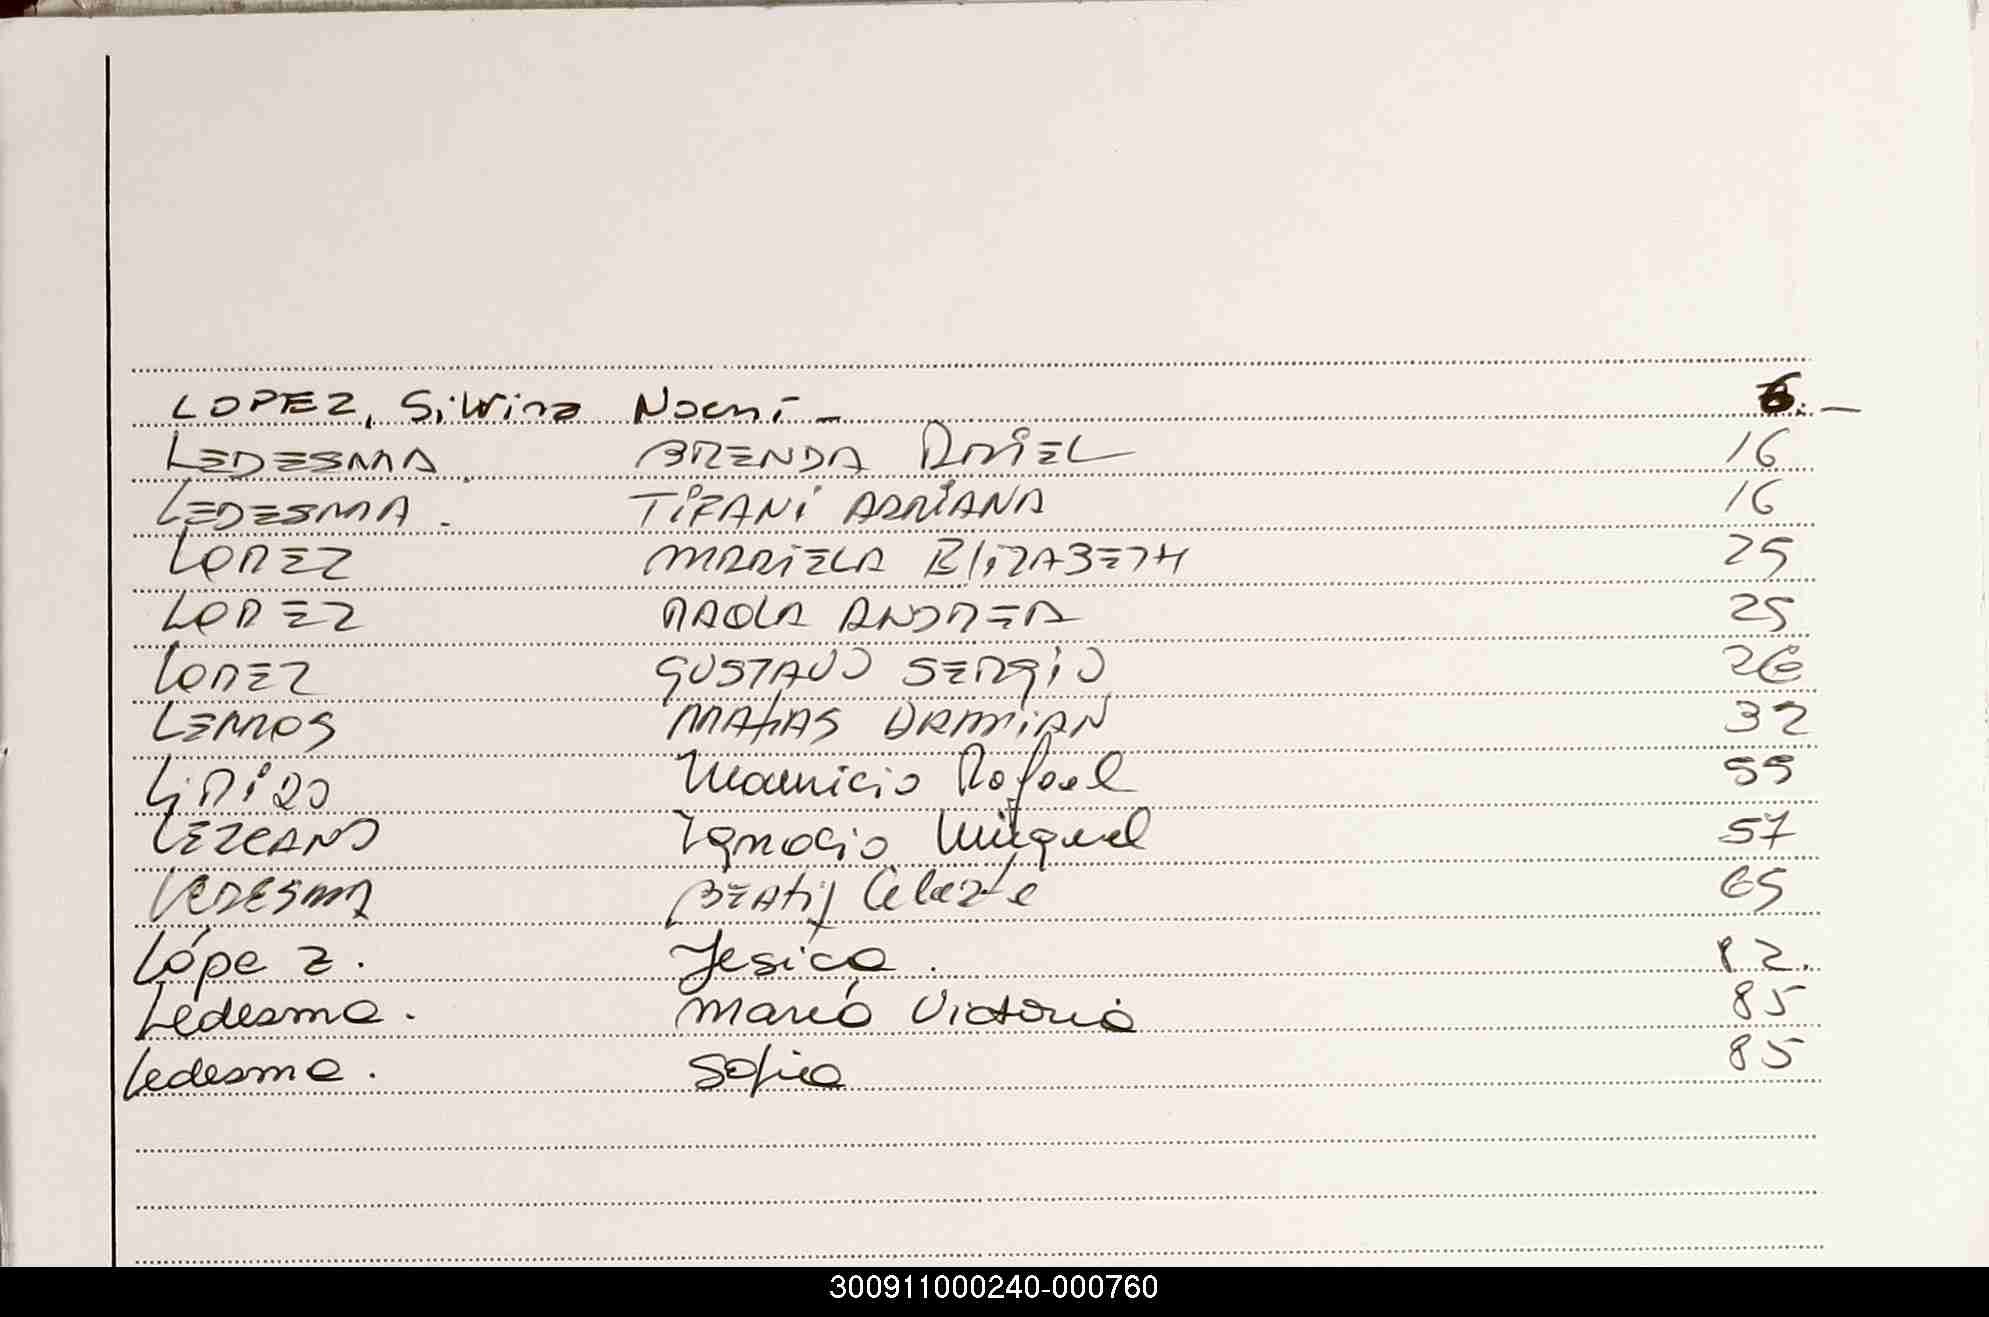 LOPEZ, Silvina Noemí - 6. -
LEDESMA BRENDA ARIEL 16
LEDESMA . TIFANI ADRIANA 16
LOPEZ MARIELA ELIZABETH 25
LOPEZ PAOLA ANDREA 25
LOPEZ GUSTAVO SERGIO 26
LEMOS MATIAS DAMIAN 32
Mauricio Rafael 55
LEZCANO Ignacio Miguel 57
LEDESMA BEATRIZ Celeste 65
López . Jesica . 82.
Ledesma . María Victoria 85
Ledesma . Sofia 85
300911000240-000760